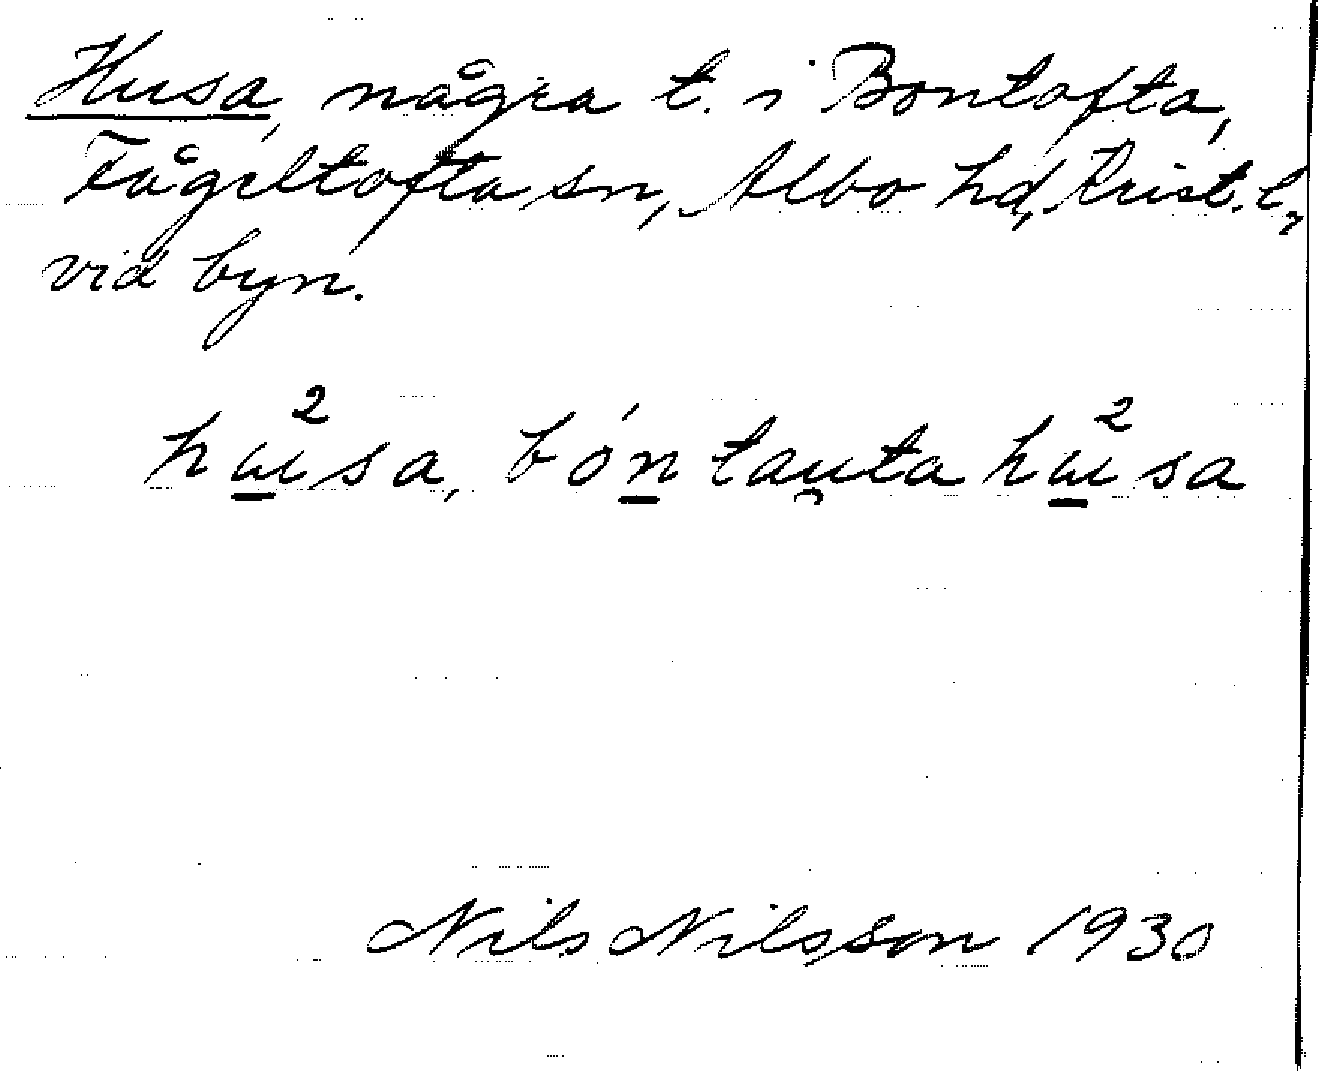 Husa, några t. i Bontofta,
Fågeltofta sn, Albo hd, Krist. l.,
vid byn.
hɯ̱²sa, bóṉtau̯ta hɯ̱²sa
Nils Nilsson 1930